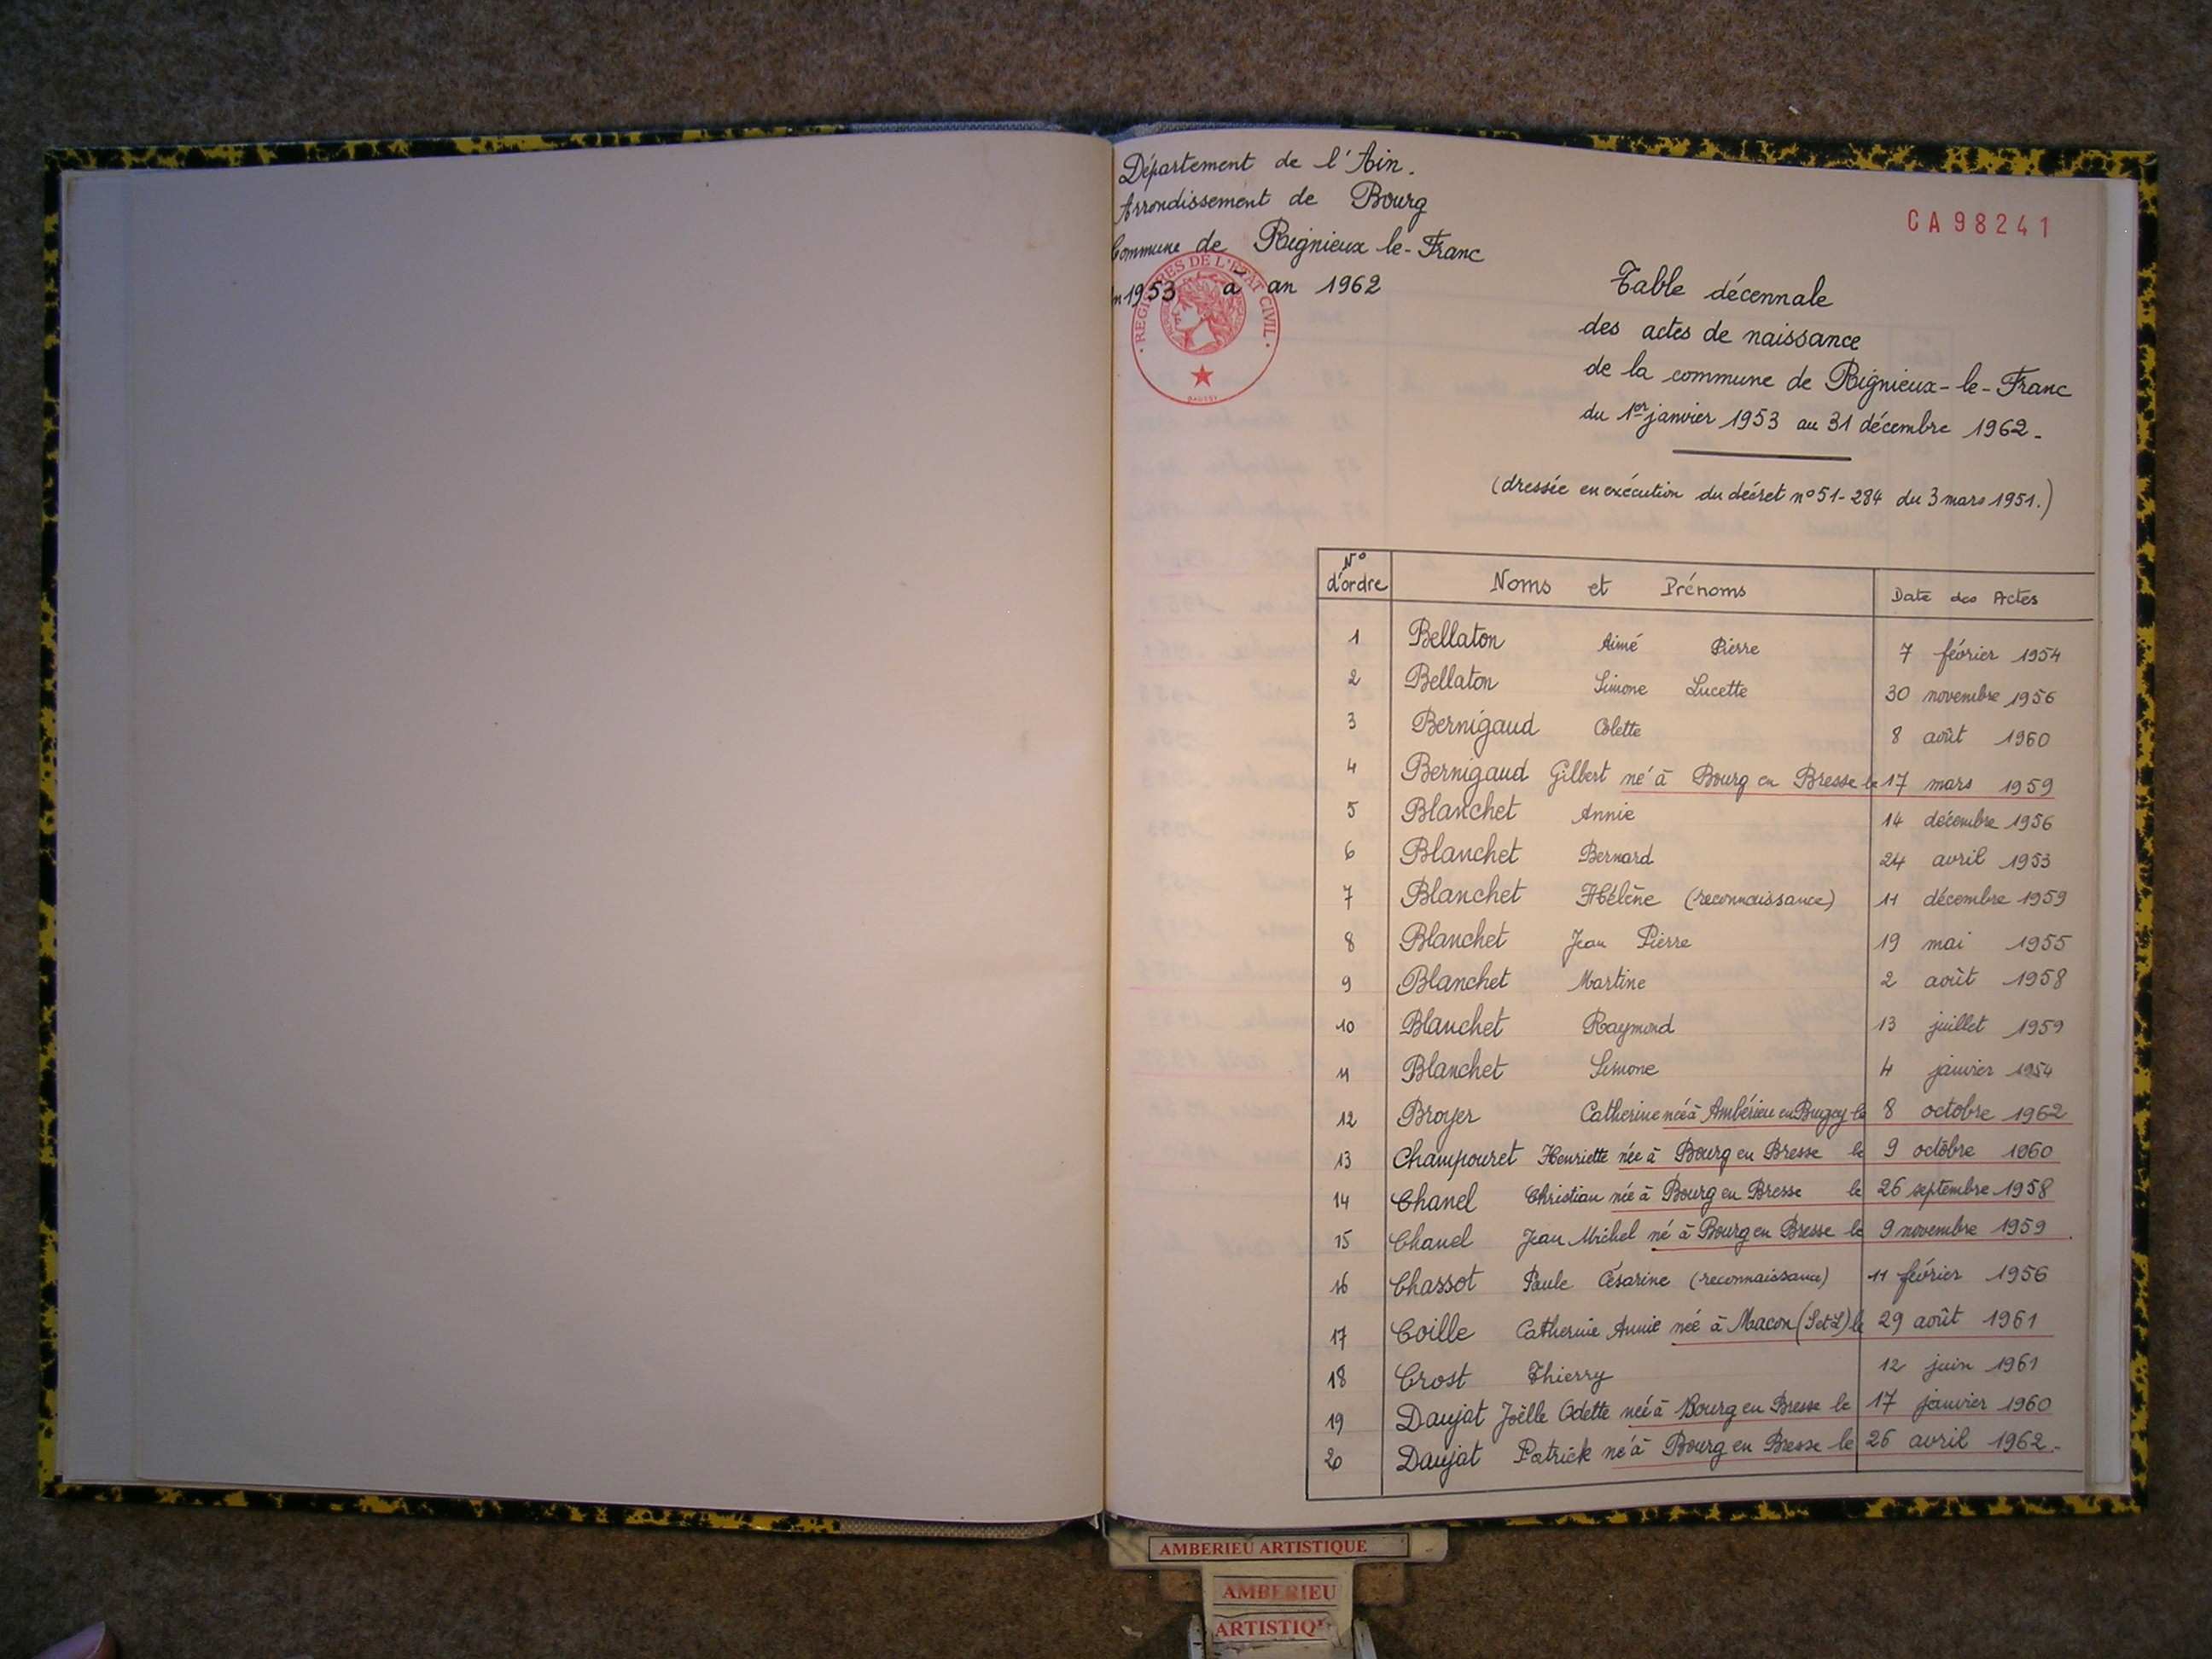 Département de l'Ain.
Arrondissement de Bourg
Commune de Rignieux le-Franc
an 1953 à an 1962
REGISTRES DE L'ETAT CIVIL
CA98241
Table décennale
des actes de naissance
de la commune de Rignieux-le-Franc
du 1er janvier 1953 au 31 décembre 1962.
(dressée en exécution du décret n° 51-284 du 3 mars 1951.)
N° d'ordre Noms et Prénoms Date des Actes
1 Bellaton Aimé Pierre 7 février 1954
2 Bellaton Simone Lucette 30 novembre 1956
3 Bernigaud Colette 8 août 1960
4 Bernigaud Gilbert né à Bourg en Bresse le 17 mars 1959
5 Blanchet Annie 14 décembre 1956
6 Blanchet Bernard 24 avril 1953
7 Blanchet Hélène (reconnaissance) 11 décembre 1959
8 Blanchet Jean Pierre 19 mai 1955
9 Blanchet Martine 2 août 1958
10 Blanchet Raymond 13 juillet 1959
11 Blanchet Simone 4 janvier 1954
12 Broyer Catherine née à Ambérieu en Bugey le 8 octobre 1962
13 Champouret Henriette née à Bourg en Bresse le 9 octobre 1960
14 Chanel Christian née à Bourg en Bresse le 26 septembre 1958
15 Chanel Jean Michel né à Bourg en Bresse le 9 novembre 1959
16 Chassot Paule Césarine (reconnaissance) 11 février 1956
17 Coille Catherine Annie née à Macon (S et L) le 29 août 1961
18 Crost Thierry 12 juin 1961
19 Daujat Joëlle Odette née à Bourg en Bresse le 17 janvier 1960
20 Daujat Patrick né à Bourg en Bresse le 26 avril 1962.
AMBERIEU ARTISTIQUE
AMBERIEU
ARTISTIQU